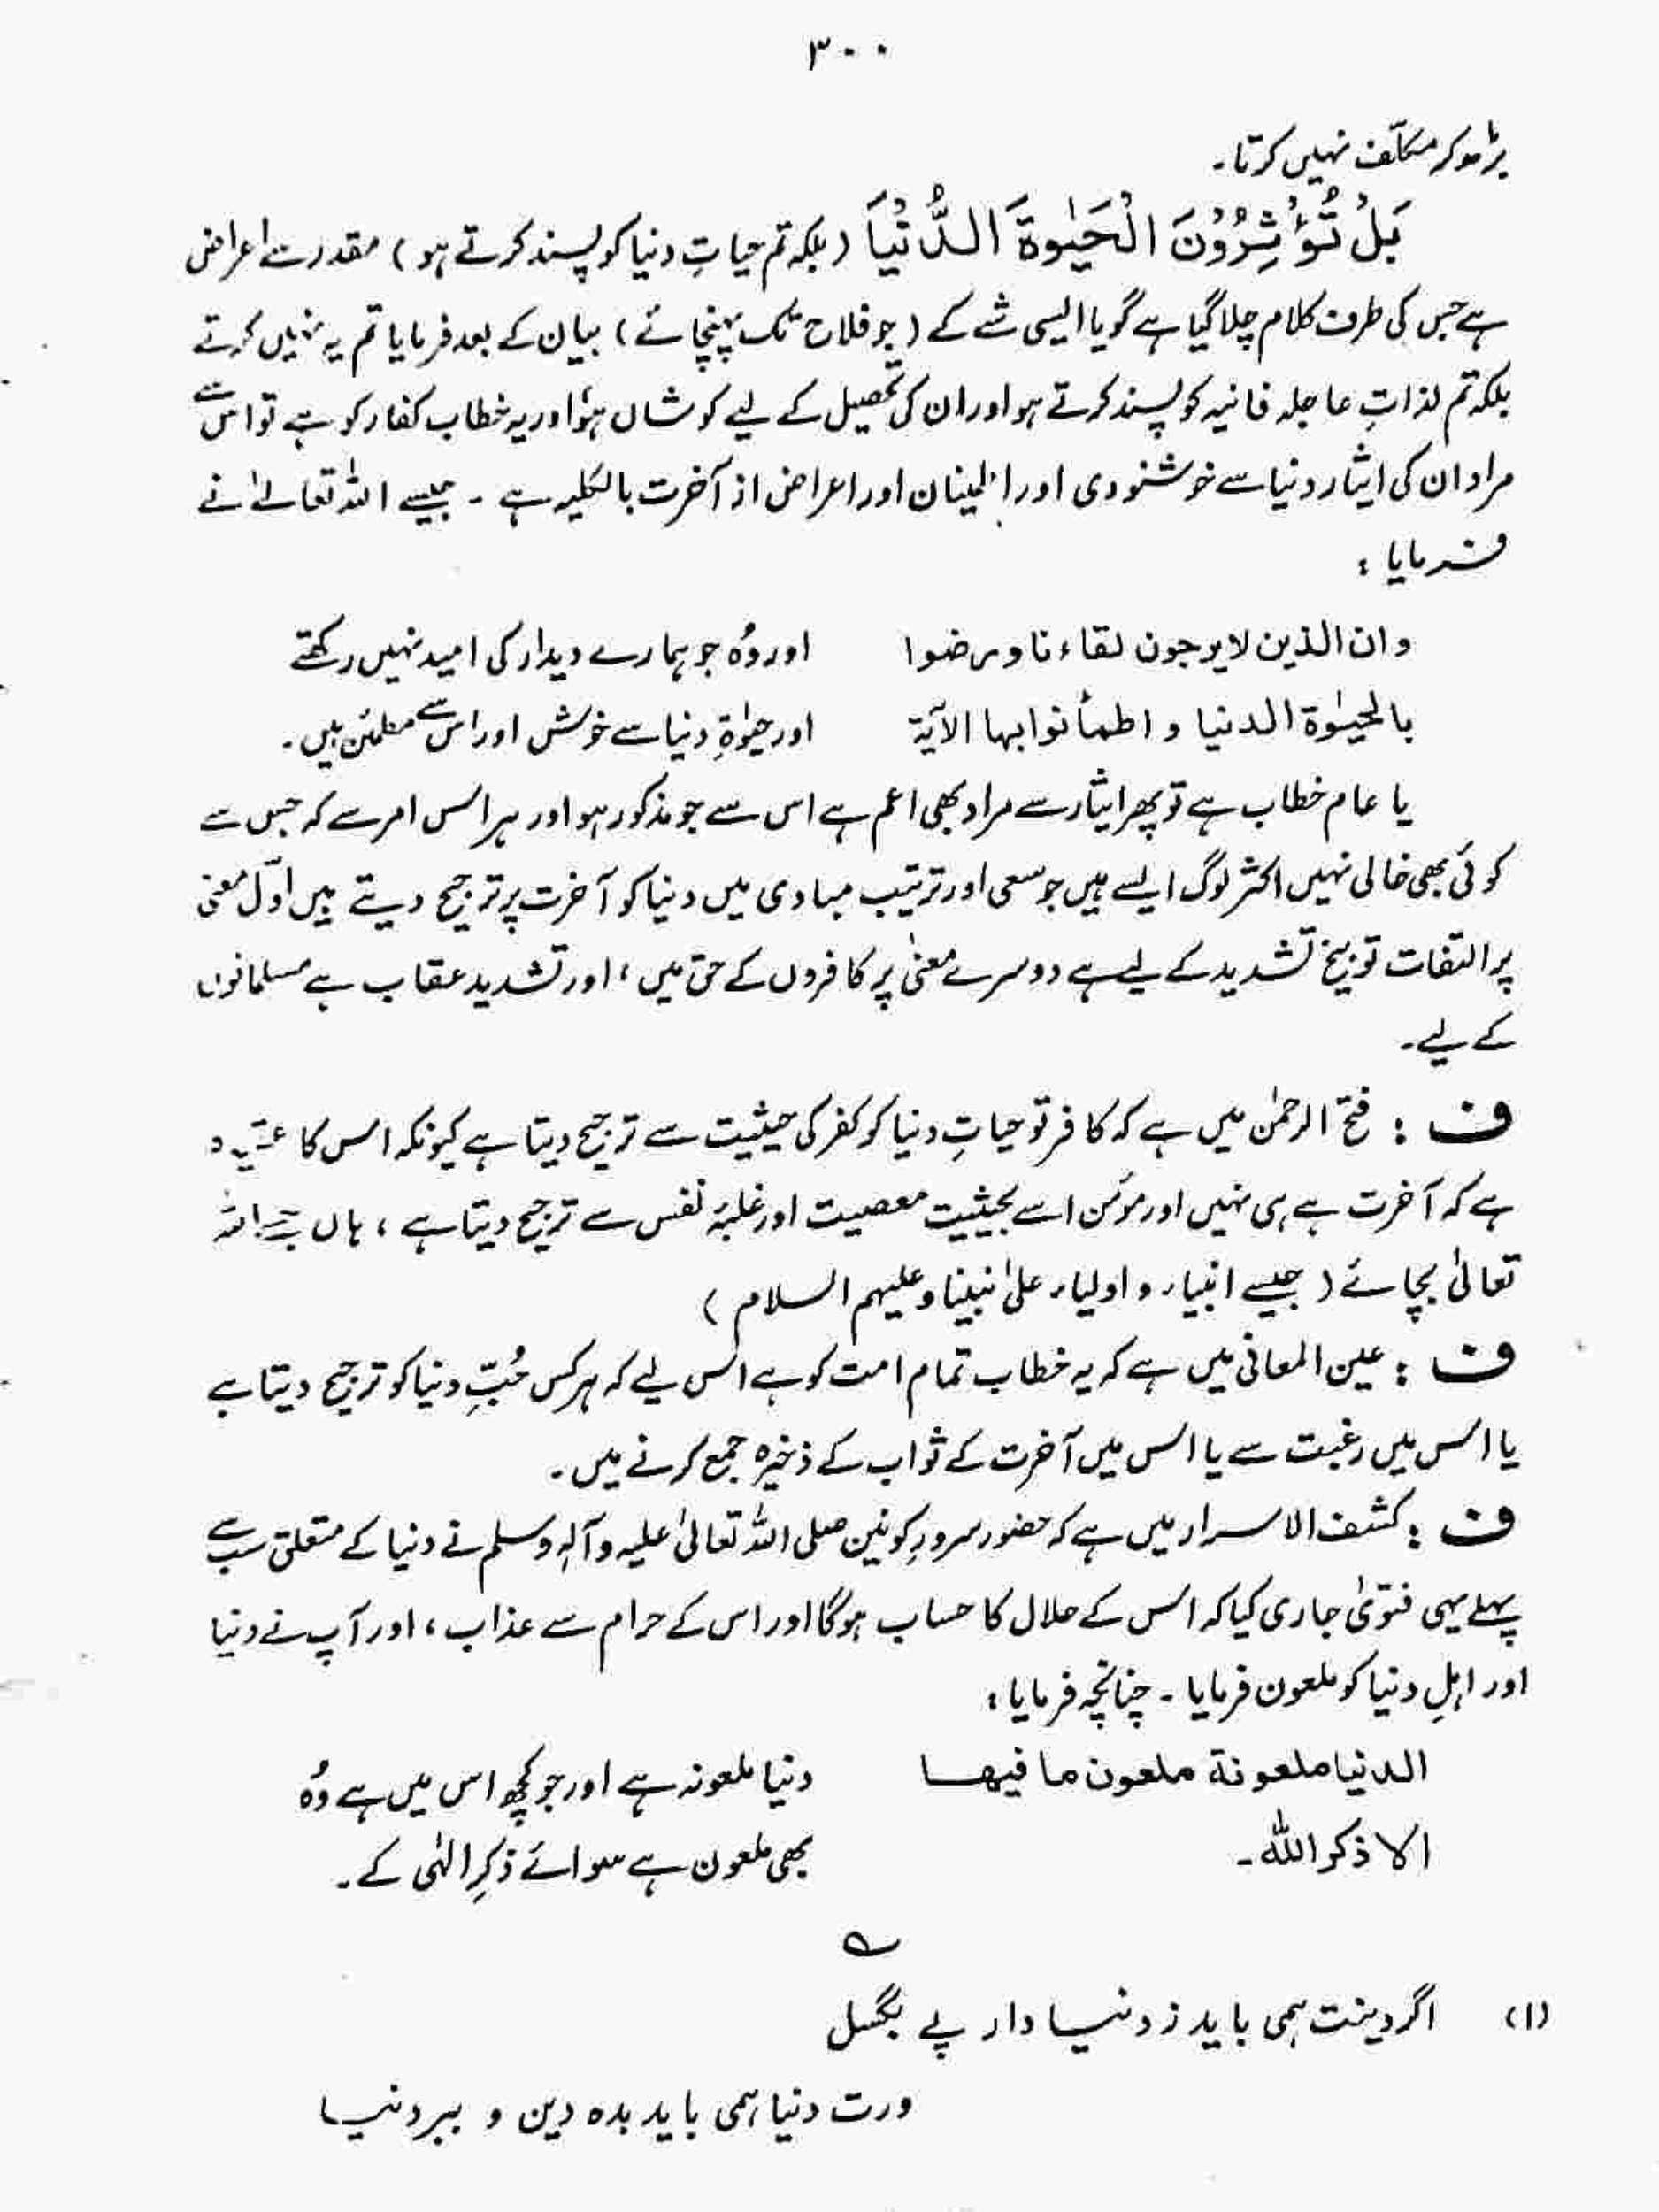 ۳۰۰
بڑھ کر مکلّف نہیں کرتا۔
بَلْ تُؤْثِرُوْنَ الْحَیٰوةَ الدُّنْیَا (بلکہ تم حیاتِ دنیا کو پسند کرتے ہو) مقدر سے اعراض
ہے جس کی طرف کلام چلا گیا ہے گویا ایسی شے کے (جو فلاح تک پہنچائے) بیان کے بعد فرمایا تم یہ نہیں کرتے
بلکہ تم لذاتِ عاجلہ فانیہ کو پسند کرتے ہو اور ان کی تحصیل کے لیے کوشاں ہو اور یہ خطاب کفار کو ہے تو اس سے
مراد ان کی ایثار دنیا سے خوشنودی اور اطمینان اور اعراض از آخرت بالکلیہ ہے ۔ جیسے اللہ تعالیٰ نے
فرمایا :
وان الذین لا یرجون لقاءنا ورضوا اور وُہ جو ہمارے دیدار کی امید نہیں رکھتے
بالحیٰوة الدنیا و اطمأنوا بها الآیة اور حیٰوةِ دنیا سے خوش اور اس سے مطمئن ہیں۔
یا عام خطاب ہے تو پھر ایثار سے مراد بھی اعم ہے اس سے جو مذکور ہو اور ہر اس امر سے کہ جس سے
کوئی بھی خالی نہیں اکثر لوگ ایسے ہیں جو سعی اور ترتیب مبادی میں دنیا کو آخرت پر ترجیح دیتے ہیں اوّل معنی
پر التفات توبیخ تشدید کے لیے ہے دوسرے معنیٰ پر کافروں کے حق میں ، اور تشدید عقاب ہے مسلمانوں
کے لیے۔
ف : فتح الرحمٰن میں ہے کہ کافر تو حیاتِ دنیا کو کفر کی حیثیت سے ترجیح دیتا ہے کیونکہ اس کا عقیدہ
ہے کہ آخرت ہے ہی نہیں اور مومن اسے بحیثیت معصیت اور غلبۂ نفس سے ترجیح دیتا ہے ، ہاں جسے اللہ
تعالیٰ بچائے (جیسے انبیاء و اولیاء علیٰ نبینا وعلیہم السلام)
ف : عین المعانی میں ہے کہ یہ خطاب تمام امت کو ہے اس لیے کہ ہر کس حُبِّ دنیا کو ترجیح دیتا ہے
یا اس میں رغبت سے یا اس میں آخرت کے ثواب کے ذخیرہ جمع کرنے میں۔
ف : کشف الاسرار میں ہے کہ حضور سرورِ کونین صلی اللہ تعالیٰ علیہ وآلہٖ وسلم نے دنیا کے متعلق سب سے
پہلے یہی فتویٰ جاری کیا کہ اس کے حلال کا حساب ہوگا اور اس کے حرام سے عذاب ، اور آپ نے دنیا
اور اہلِ دنیا کو ملعون فرمایا ۔ چنانچہ فرمایا :
الدنیا ملعونة ملعون ما فیها دنیا ملعونہ ہے اور جو کچھ اس میں ہے وُہ
الا ذکر اللہ۔ بھی ملعون ہے سوائے ذکرِ الٰہی کے۔
؎
(۱) اگر دینت ہمی باید ز دنیا دار پے بگسل
ورت دنیا ہمی باید بدہ دین و ببر دنیا